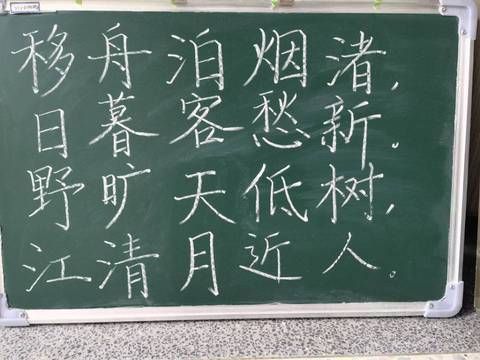 移舟泊烟渚，
日暮客愁新。
野旷天低树，
江清月近人。